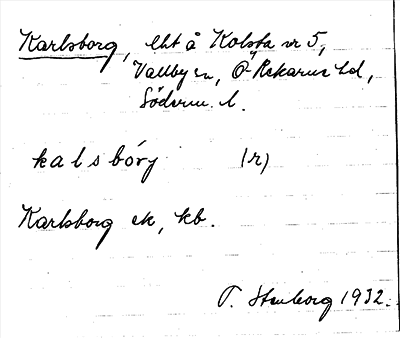 Karlsborg, lht å Kolsta nr 5,
Vallby sn, Ö-Rekarne hd,
Söderm. l.
kalsbóry (r)
Karlsborg ek, kb.
T. Stenborg 1932.